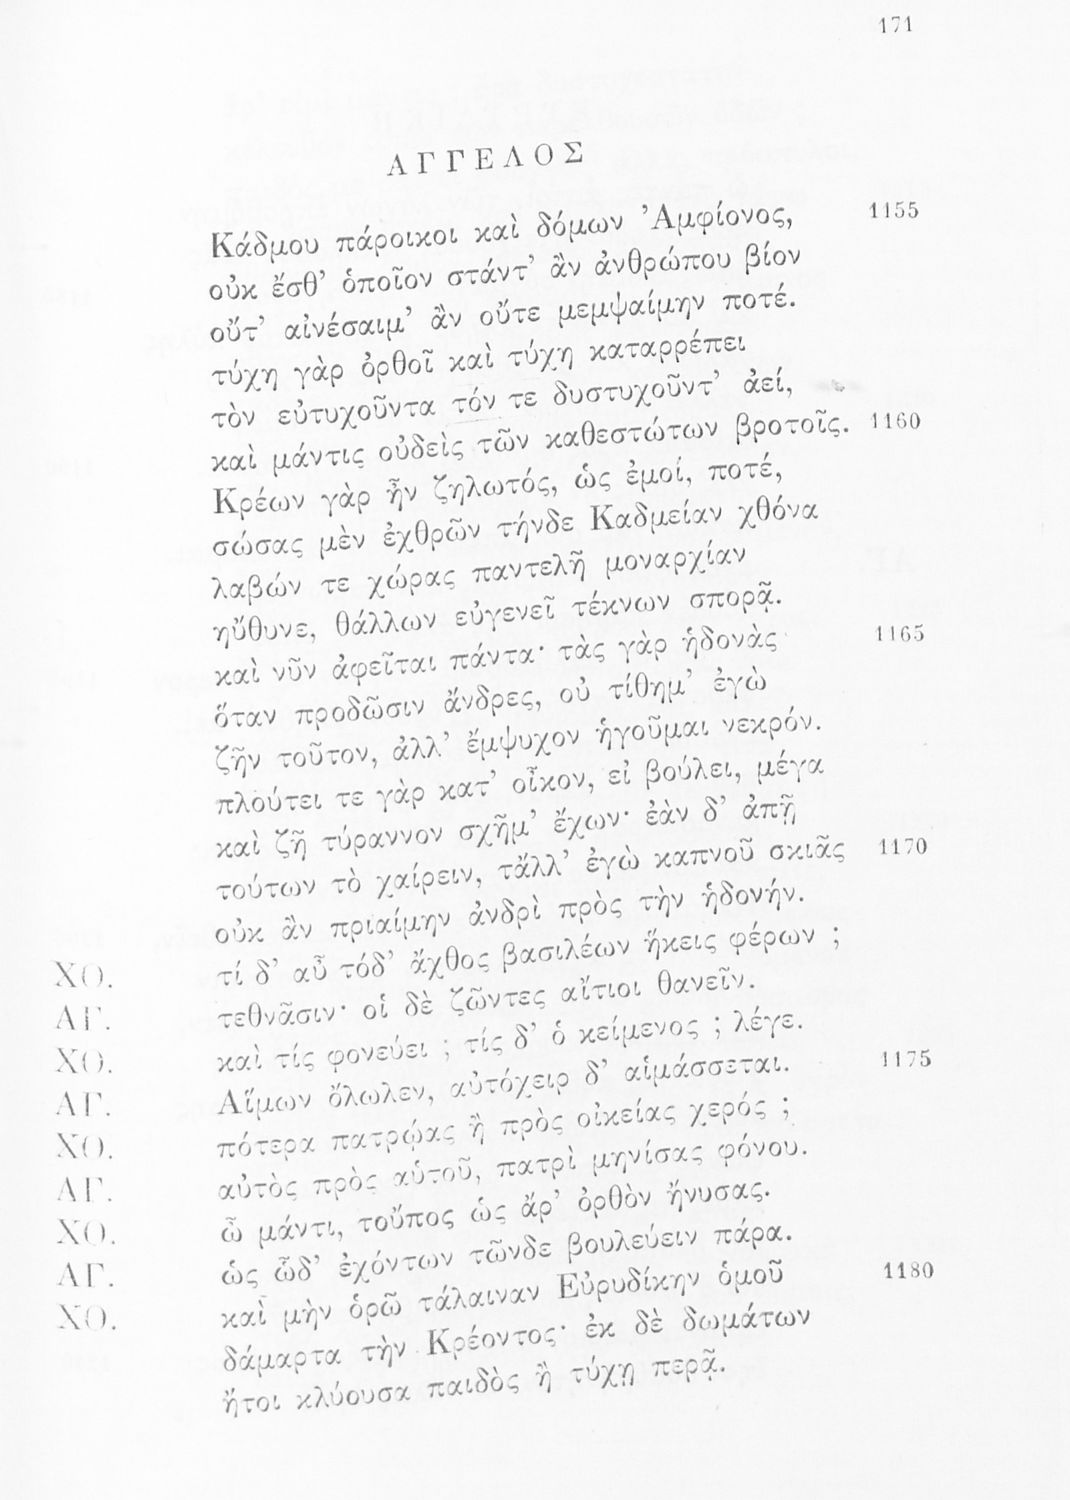 171
ΑΓΓΕΛΟΣ
Κάδμου πάροικοι καὶ δόμων Ἀμφίονος, 1155
οὐκ ἔσθ’ ὁποῖον στάντ’ ἂν ἀνθρώπου βίον
οὔτ’ αἰνέσαιμ’ ἂν οὔτε μεμψαίμην ποτέ.
τύχη γὰρ ὀρθοῖ καὶ τύχη καταρρέπει
τὸν εὐτυχοῦντα τόν τε δυστυχοῦντ’ ἀεί,
καὶ μάντις οὐδεὶς τῶν καθεστώτων βροτοῖς. 1160
Κρέων γὰρ ἦν ζηλωτός, ὡς ἐμοί, ποτέ,
σώσας μὲν ἐχθρῶν τήνδε Καδμείαν χθόνα
λαβών τε χώρας παντελῆ μοναρχίαν
ηὔθυνε, θάλλων εὐγενεῖ τέκνων σπορᾷ.
καὶ νῦν ἀφεῖται πάντα· τὰς γὰρ ἡδονὰς 1165
ὅταν προδῶσιν ἄνδρες, οὐ τίθημ’ ἐγὼ
ζῆν τοῦτον, ἀλλ’ ἔμψυχον ἡγοῦμαι νεκρόν.
πλούτει τε γὰρ κατ’ οἶκον, εἰ βούλει, μέγα
καὶ ζῆ τύραννον σχῆμ’ ἔχων· ἐὰν δ’ ἀπῇ
τούτων τὸ χαίρειν, τἄλλ’ ἐγὼ καπνοῦ σκιᾶς 1170
οὐκ ἂν πριαίμην ἀνδρὶ πρὸς τὴν ἡδονήν.
ΧΟ. τί δ’ αὖ τόδ’ ἄχθος βασιλέων ἥκεις φέρων ;
ΑΓ. τεθνᾶσιν· οἱ δὲ ζῶντες αἴτιοι θανεῖν.
ΧΟ. καὶ τίς φονεύει ; τίς δ’ ὁ κείμενος ; λέγε.
ΑΓ. Αἵμων ὄλωλεν, αὐτόχειρ δ’ αἱμάσσεται. 1175
ΧΟ. πότερα πατρῴας ἢ πρὸς οἰκείας χερός ;
ΑΓ. αὐτὸς πρὸς αὑτοῦ, πατρὶ μηνίσας φόνου.
ΧΟ. ὦ μάντι, τοὔπος ὡς ἄρ’ ὀρθὸν ἤνυσας.
ΑΓ. ὡς ὧδ’ ἐχόντων τῶνδε βουλεύειν πάρα.
ΧΟ. καὶ μὴν ὁρῶ τάλαιναν Εὐρυδίκην ὁμοῦ 1180
δάμαρτα τὴν Κρέοντος· ἐκ δὲ δωμάτων
ἤτοι κλύουσα παιδὸς ἢ τύχῃ περᾷ.